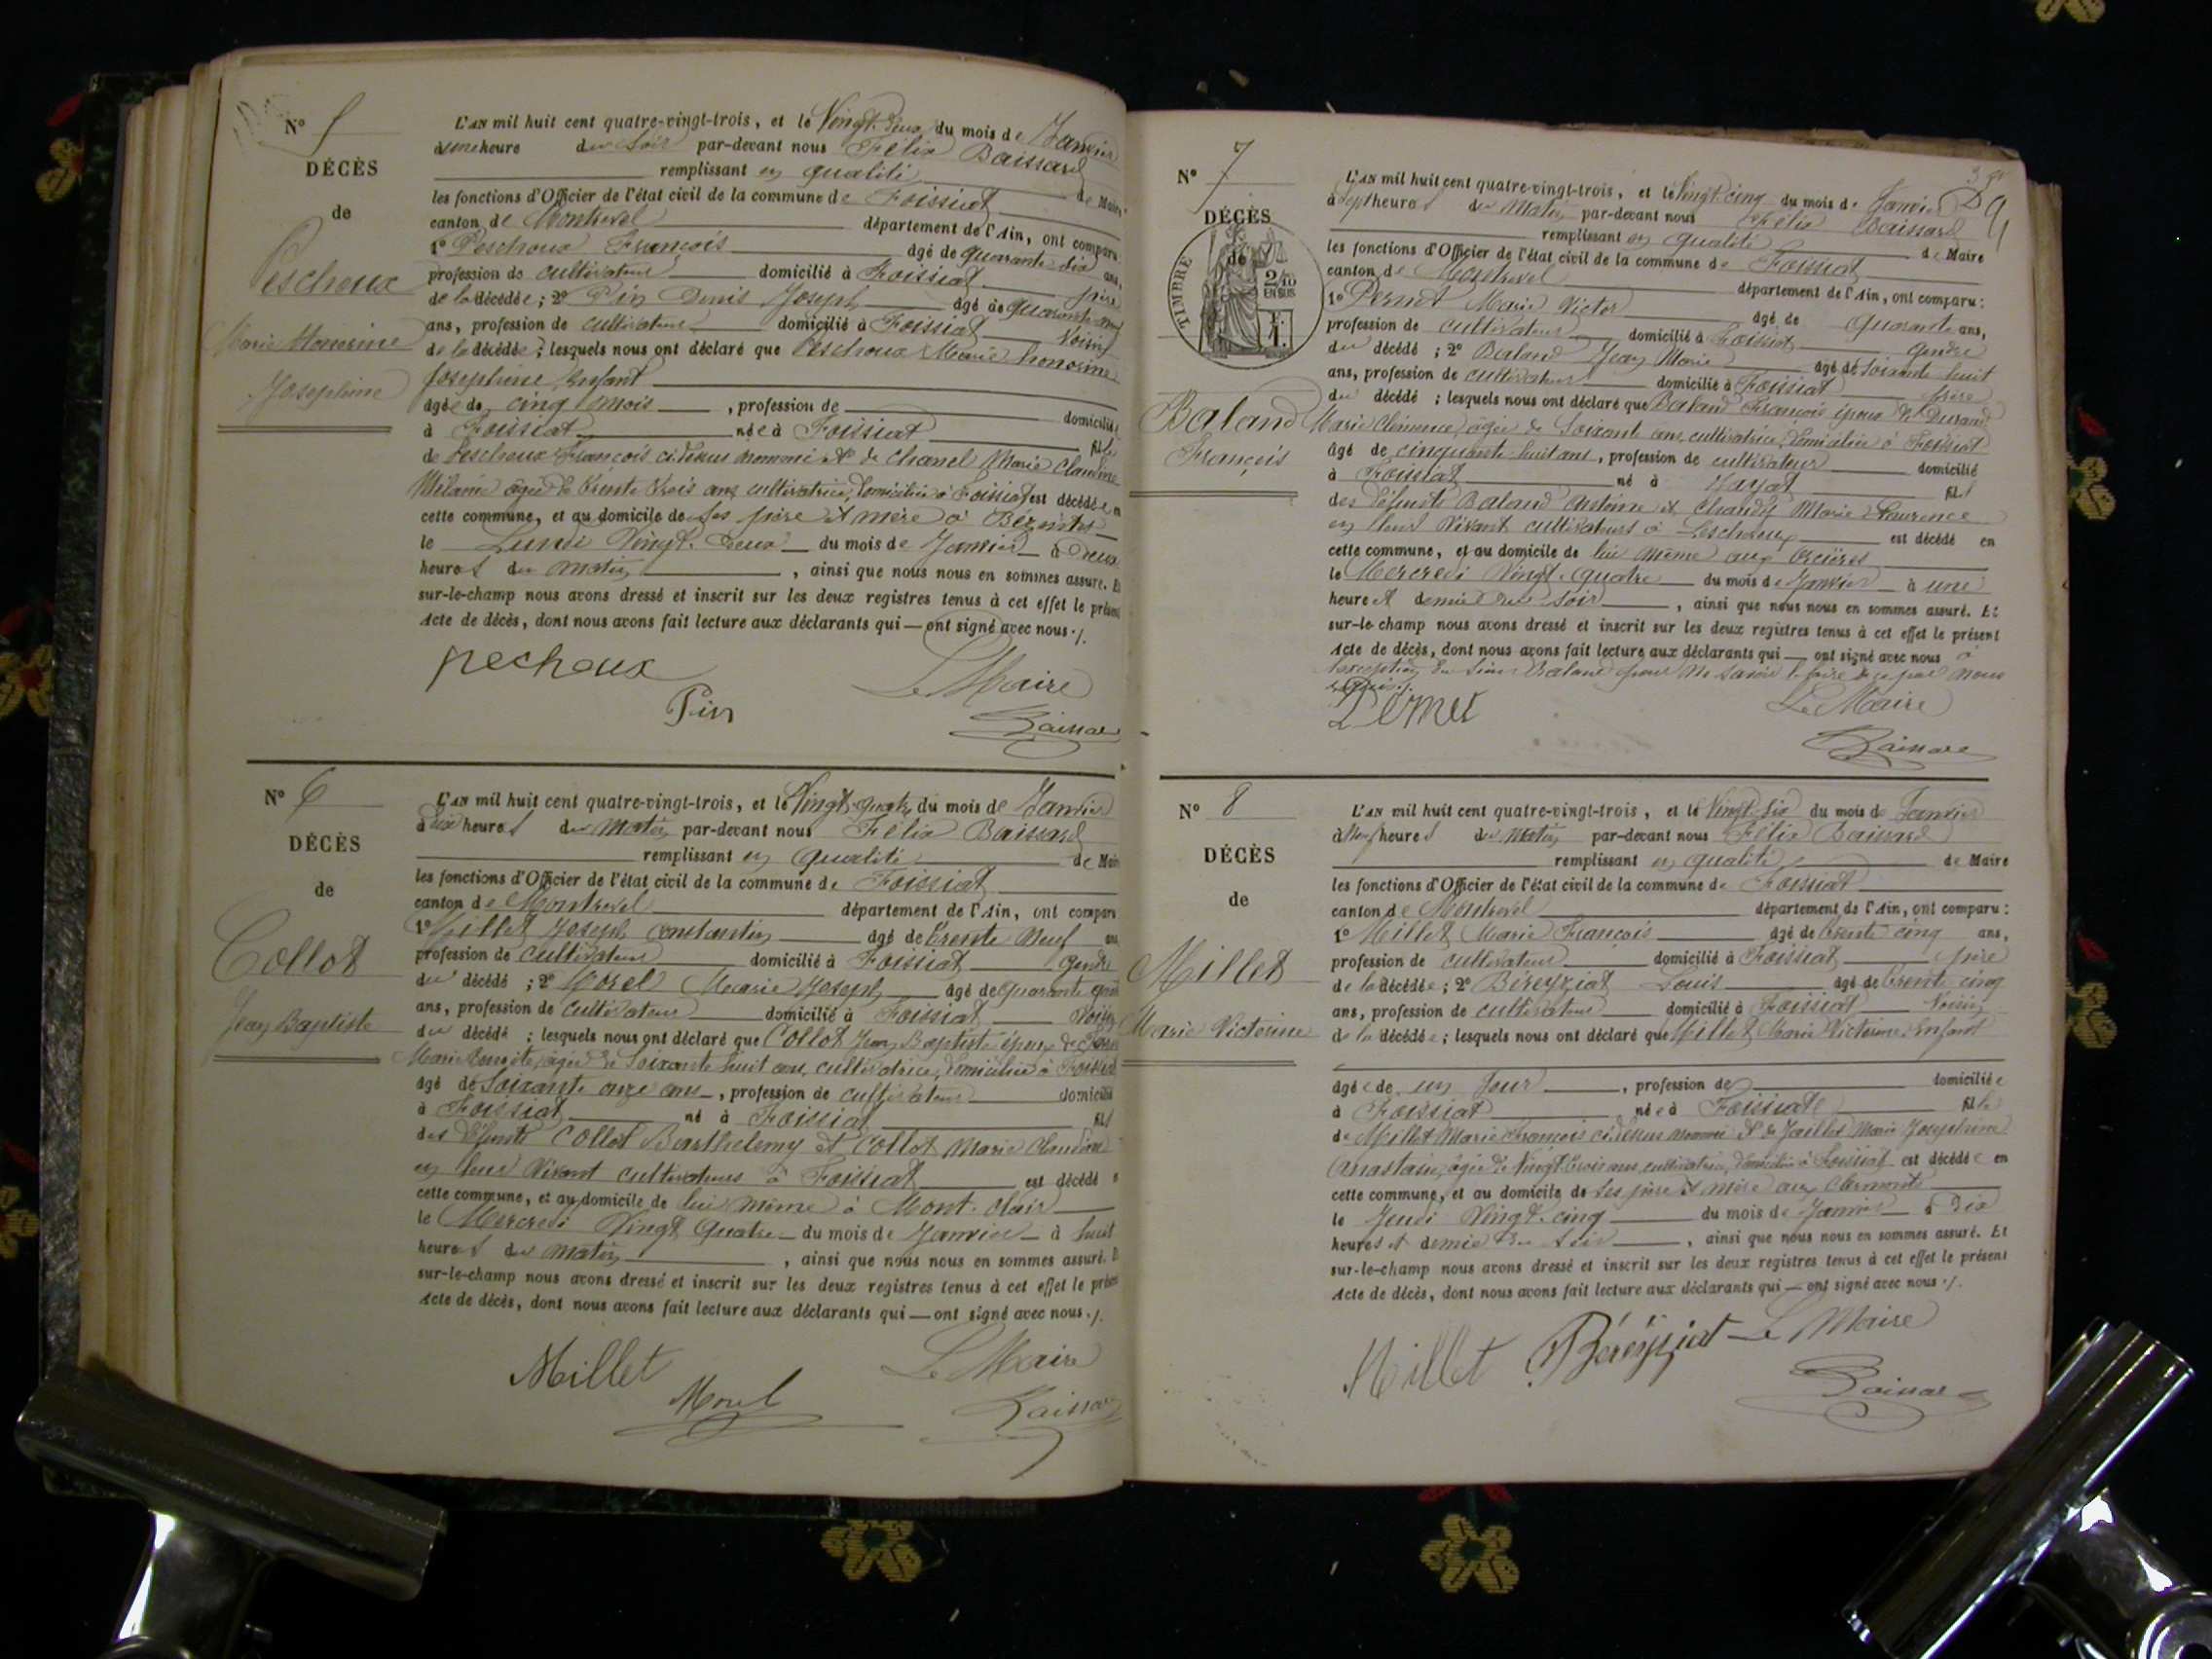 N° 5
DÉCÈS
de
Peschoux
Marie Honorine
Josephine
L'AN mil huit cent quatre-vingt-trois, et le Vingt-deux du mois de Janvier
à une heure du Soir par-devant nous Félix Baissard
remplissant en qualité de Maire
les fonctions d'Officier de l'état civil de la commune de Foissiat
canton de Montrevel département de l'Ain, ont comparu
1° Peschoux François âgé de quarante six ans,
profession de cultivateur domicilié à Foissiat père
de la décédée ; 2° Pin Denis Joseph âgé de quarante
ans, profession de cultivateur domicilié à Foissiat Voisin
de la décédée ; lesquels nous ont déclaré que Peschoux Marie honorine
Josephine Enfant
âgée de cinq mois , profession de domiciliée
à Foissiat née à Foissiat fille
de Peschoux François ci dessus nommé et de Chanel Marie Claudine
Mélanie âgée de trente trois ans cultivatrice, domiciliée à Foissiat est décédée en
cette commune, et au domicile de ses père et mère à Bézentet
le Lundi Vingt-deux du mois de Janvier à deux
heures du matin , ainsi que nous nous en sommes assuré. Et
sur-le-champ nous avons dressé et inscrit sur les deux registres tenus à cet effet le présent
Acte de décès, dont nous avons fait lecture aux déclarants qui — ont signé avec nous ./.
pechoux
Pin
Le Maire
Baissard
N° 6
DÉCÈS
de
Collot
Jean Baptiste
L'AN mil huit cent quatre-vingt-trois, et le Vingt-quatre du mois de Janvier
à dix heures du Matin par-devant nous Félix Baissard
remplissant en qualité de Maire
les fonctions d'Officier de l'état civil de la commune de Foissiat
canton de Montrevel département de l'Ain, ont comparu
1° Millet Joseph constantin âgé de trente Neuf ans
profession de cultivateur domicilié à Foissiat gendre
du décédé ; 2° Morel Marie Joseph âgé de quarante
ans, profession de cultivateur domicilié à Foissiat Voisin
du décédé ; lesquels nous ont déclaré que Collot Jean Baptiste époux de
Marie âgée de Soixante huit ans, cultivatrice, domiciliée à Foissiat
âgé de Soixante onze ans , profession de cultivateur domicilié
à Foissiat né à Foissiat fils
des défunts Collot Barthelemy et Collot Marie Claudine
en leur Vivant cultivateurs à Foissiat est décédé
cette commune, et au domicile de lui même à Mont-clair
le Mercredi Vingt Quatre du mois de Janvier à huit
heures du matin , ainsi que nous nous en sommes assuré.
sur-le-champ nous avons dressé et inscrit sur les deux registres tenus à cet effet le présent
Acte de décès, dont nous avons fait lecture aux déclarants qui — ont signé avec nous ./.
Millet
Morel
Le Maire
Baissard
N° 7
DÉCÈS
de
TIMBRE
2/10
EN SUS
Baland
François
L'AN mil huit cent quatre-vingt-trois, et le Vingt-cinq du mois de Janvier
à Sept heures du Matin par-devant nous Félix Baissard
remplissant en qualité de Maire
les fonctions d'Officier de l'état civil de la commune de Foissiat
canton de Montrevel département de l'Ain, ont comparu :
1° Pernet Marie Victor âgé de quarante ans,
profession de cultivateur domicilié à Foissiat gendre
du décédé ; 2° Baland Jean Marie âgé de Soixante huit
ans, profession de cultivateur domicilié à Foissiat frère
du décédé ; lesquels nous ont déclaré que Baland François époux de Durand
Marie Clémence, âgée de Soixante ans, cultivatrice, domiciliée à Foissiat
âgé de cinquante huit ans , profession de cultivateur domicilié
à Foissiat né à Jayat fils
des défunts Baland Antoine et Chandy Marie Laurence
en leur Vivant cultivateurs à Lescheroux est décédé en
cette commune, et au domicile de lui même aux
le Mercredi Vingt-quatre du mois de Janvier à une
heure et demie du soir , ainsi que nous nous en sommes assuré. Et
sur-le-champ nous avons dressé et inscrit sur les deux registres tenus à cet effet le présent
Acte de décès, dont nous avons fait lecture aux déclarants qui — ont signé avec nous à
l'exception du Sieur Baland pour ne savoir le faire de ce par nous
requis ./.
Pernet
Le Maire
Baissard
N° 8
DÉCÈS
de
Millet
Marie Victorine
L'AN mil huit cent quatre-vingt-trois, et le Vingt-Six du mois de Janvier
à Neuf heures du Matin par-devant nous Félix Baissard
remplissant en qualité de Maire
les fonctions d'Officier de l'état civil de la commune de Foissiat
canton de Montrevel département de l'Ain, ont comparu :
1° Millet Marie François âgé de trente cinq ans,
profession de cultivateur domicilié à Foissiat père
de la décédée ; 2° Béreyziat Louis âgé de trente cinq
ans, profession de cultivateur domicilié à Foissiat Voisin
de la décédée ; lesquels nous ont déclaré que Millet Marie Victorine Enfant
âgée de un Jour , profession de domiciliée
à Foissiat née à Foissiat fille
de Millet Marie François ci dessus nommé et de Jaillet Marie Josephine
Anastasie, âgée de Vingt trois ans, cultivatrice, domiciliée à Foissiat est décédée en
cette commune, et au domicile de ses père et mère aux Clermonts
le Jeudi Vingt-cinq du mois de Janvier à Dix
heures et demie du soir , ainsi que nous nous en sommes assuré. Et
sur-le-champ nous avons dressé et inscrit sur les deux registres tenus à cet effet le présent
Acte de décès, dont nous avons fait lecture aux déclarants qui — ont signé avec nous ./.
Millet Béréyziat Le Maire
Baissard